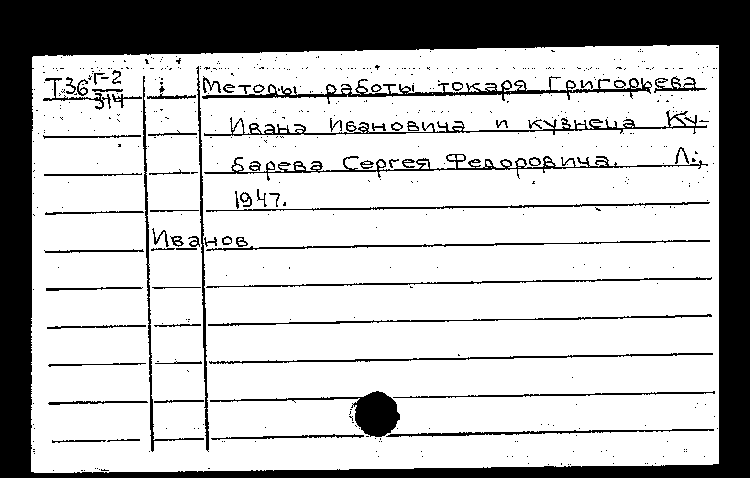 Т36 Г-2/314 Методы работы токаря Григорьева
Ивана Ивановича и кузнеца Ку-
барева Сергея Федоровича. Л.,
1947.
Иванов